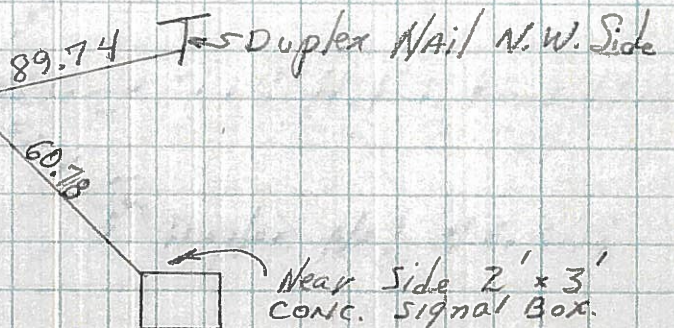 89.74
Duplex Nail N.W. Side
60.78
Near Side 2' x 3'
Conc. Signal Box.